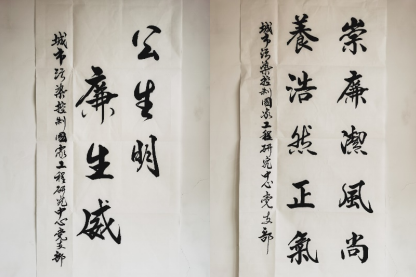 公生明
廉生威
城市污染控制国家工程研究中心党支部
崇廉潔風尚
養浩然正氣
城市污染控制國家工程研究中心党支部